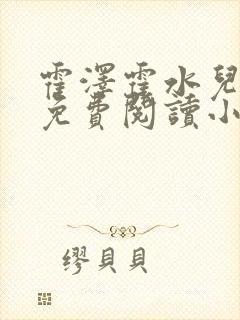 霍澤霍水兒
免費閱讀小
繆貝貝